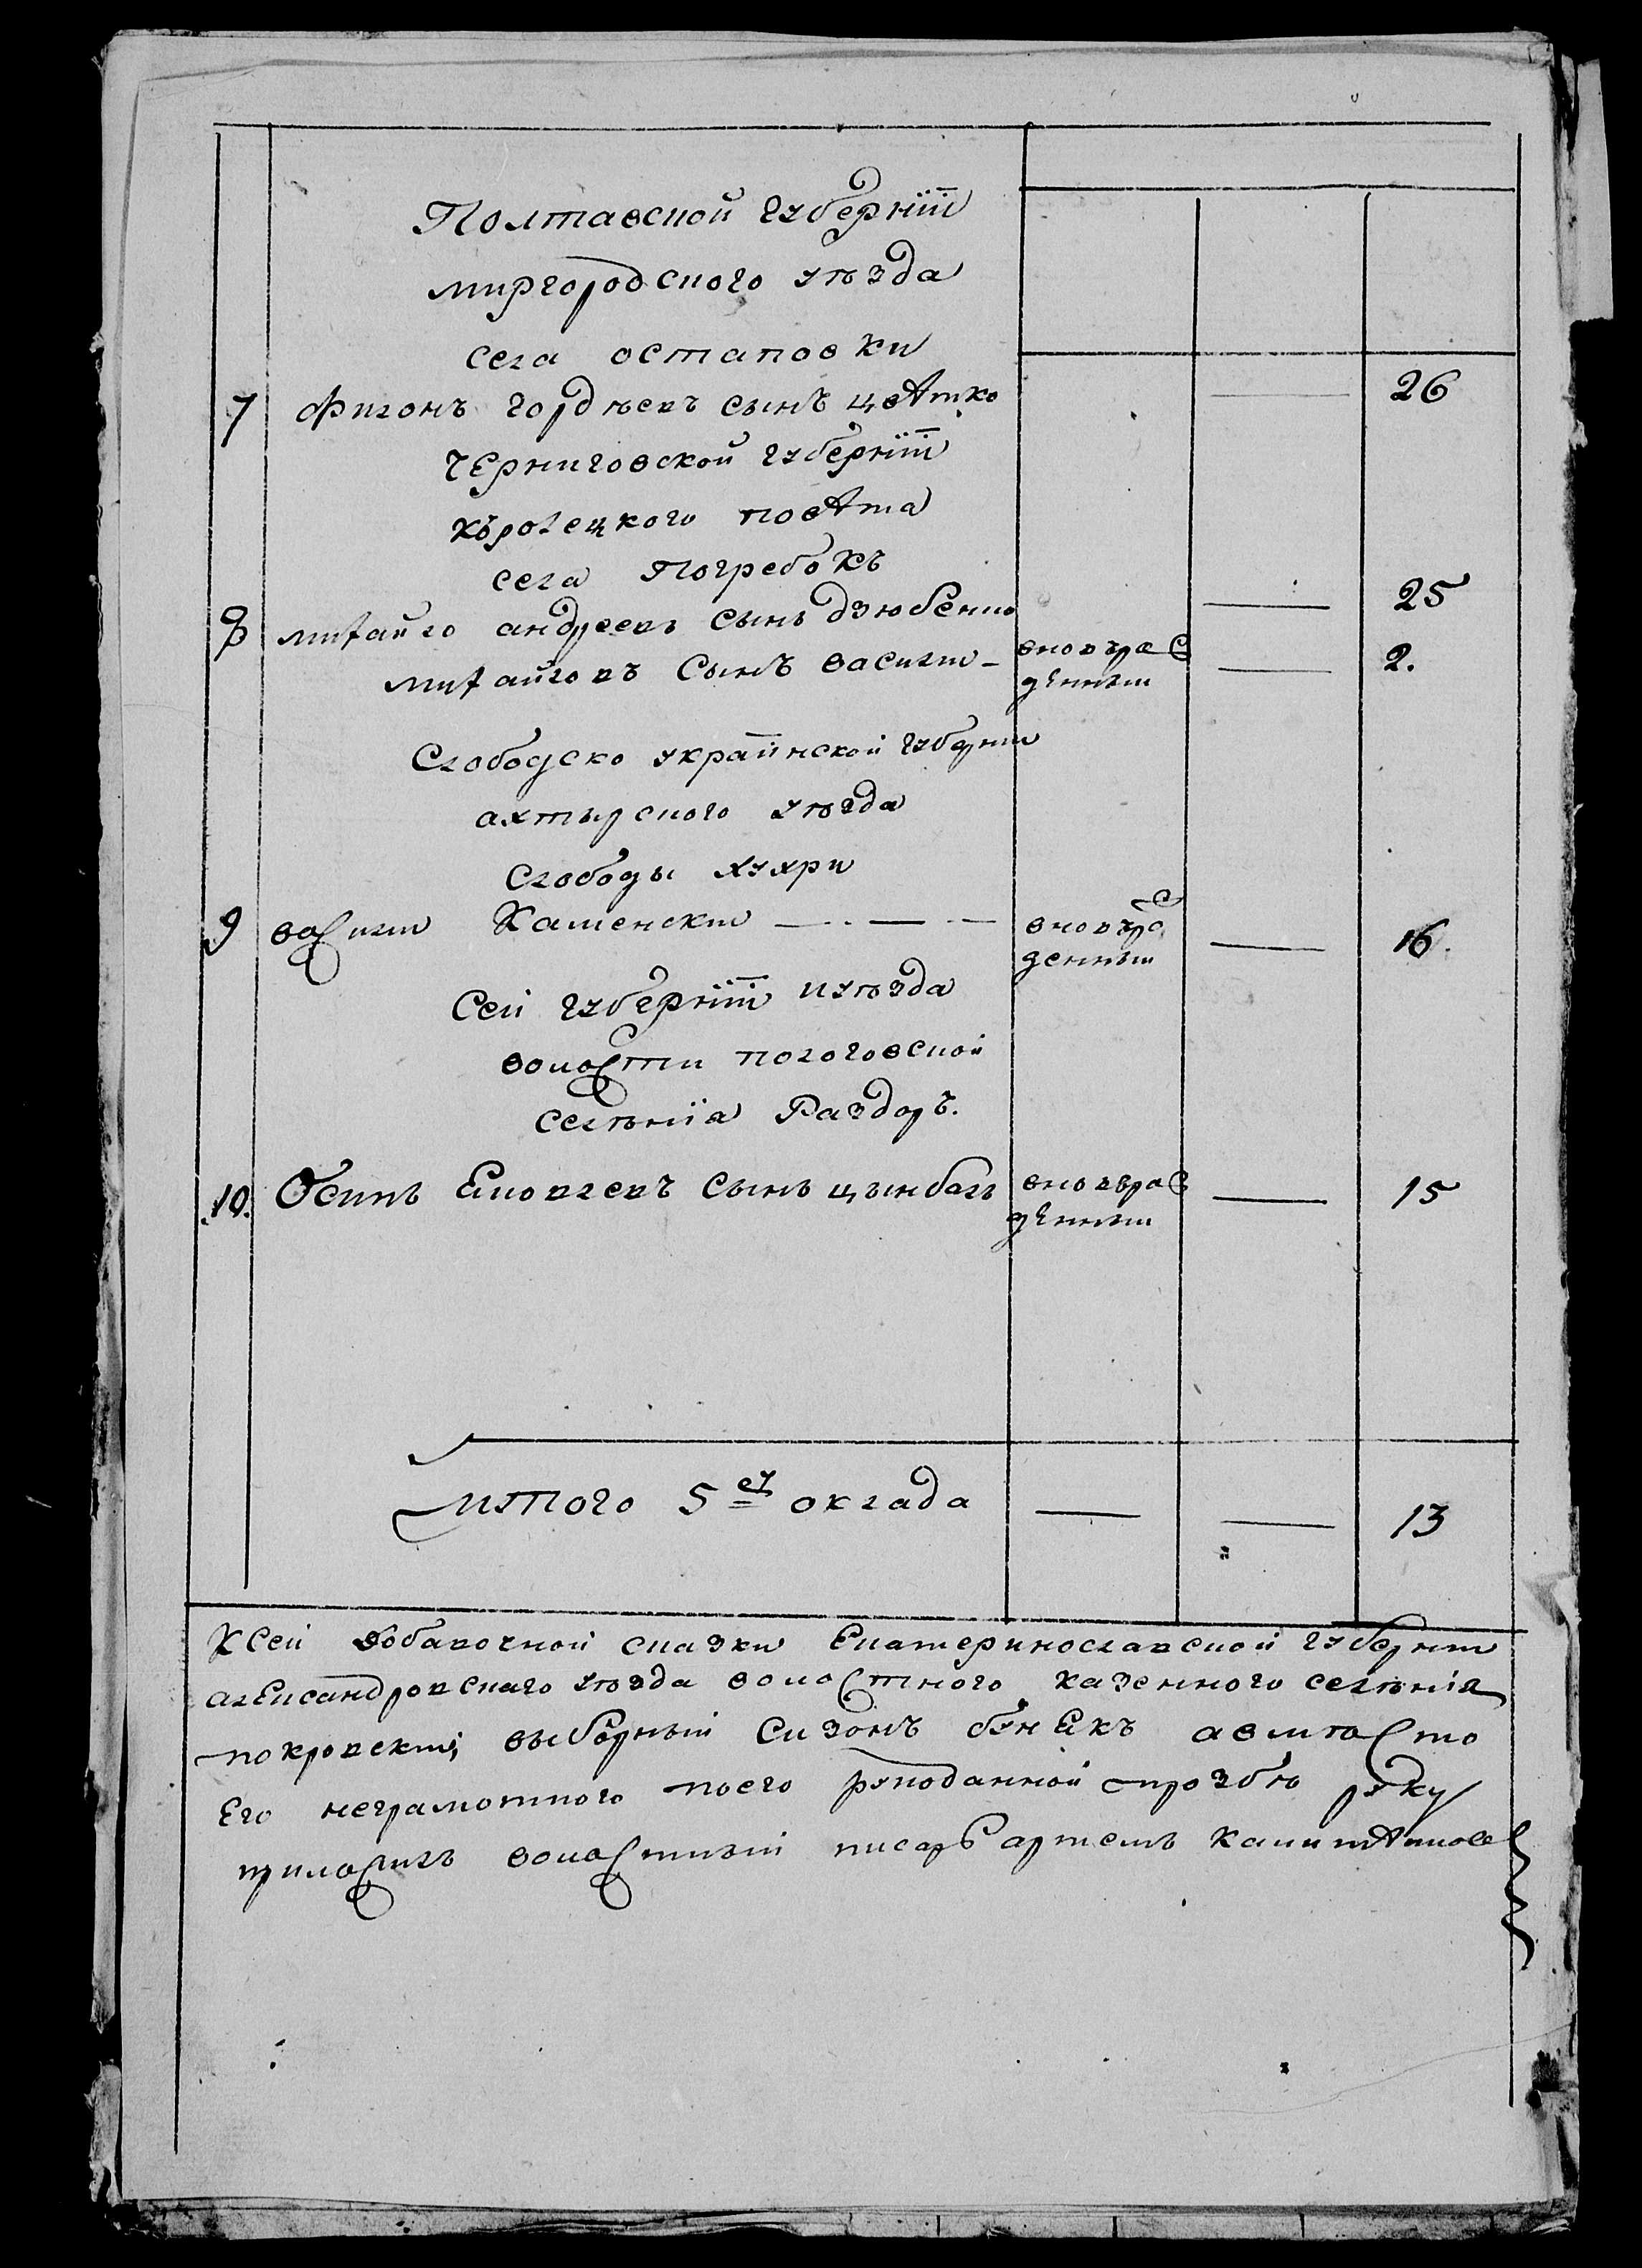 Полтавской губернїи
миргородского уѣзда
села остаповки
7 Филонъ гордѣевъ сынъ цвѣтко — 26
черниговской губернїи
королецкого повѣта
села Погребокъ
8 михайло андреевъ сынъ дзюбенко — 25
михайловъ сынъ василии - вновьрож — 2.
денныи
Слободско украинской губернии
ахтырского уѣзда
слободы хухри
9 василии Каменскии — — — вновьрож — 16.
денныи
Сей губернїи иуѣзда
волости пологовской
селѣнїя Раздоръ.
10. Осипъ Яковлевъ сынъ цымбалъ вновьрож — 15
денныи
Итого 5ем оклада — — 13
Ксей добавочной сказки Екатеринославской губернии
александровскаго уѣзда волостного казенного селѣнїя
покровскии, выборныи Сизонъ бунякъ авмѣсто
Его неграмотного поего рукоданной прозбѣ руку
приложилъ волостныи писарь артемъ